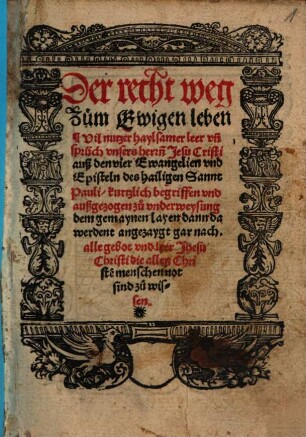 Der recht weg
Zům Ewigen leben
¶ Vil nutzer haylsamer leer vñ
sprüch vnsers herrñ Jesu Cristi
auß den vier Ewangelien vnd
Episteln des hailigen Sannt
Pauli / kurtzlich begriffen vnd
außgezogen zů vnderweysung
dem gemaynen layen dann da
werdent angezaygt gar nach
alle gebot vnd leer Jhesu
Christi die allen Chri
stẽ menschen not
sind zů wis-
sen.